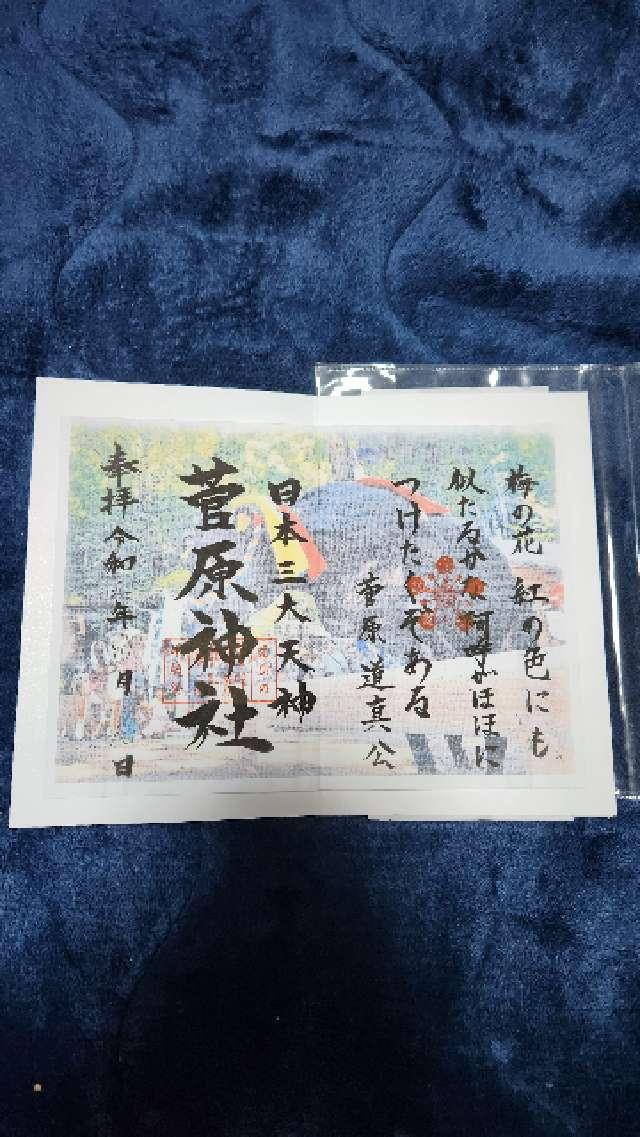 梅の花 紅の色にも
似たるかな 阿呼がほほに
つけたくぞある
菅原道真公
日本三大天神
菅原神社
奉拝 令和 年 月 日